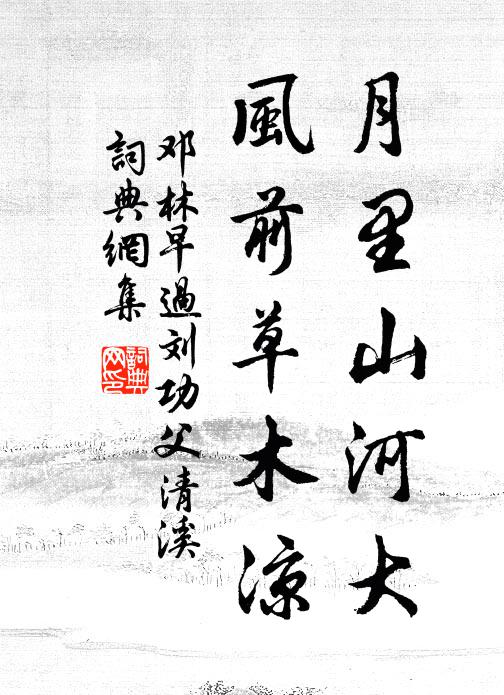 月里山河大
風前草木涼
邓林早過刘功父清溪
詞典網集
詞典
网印